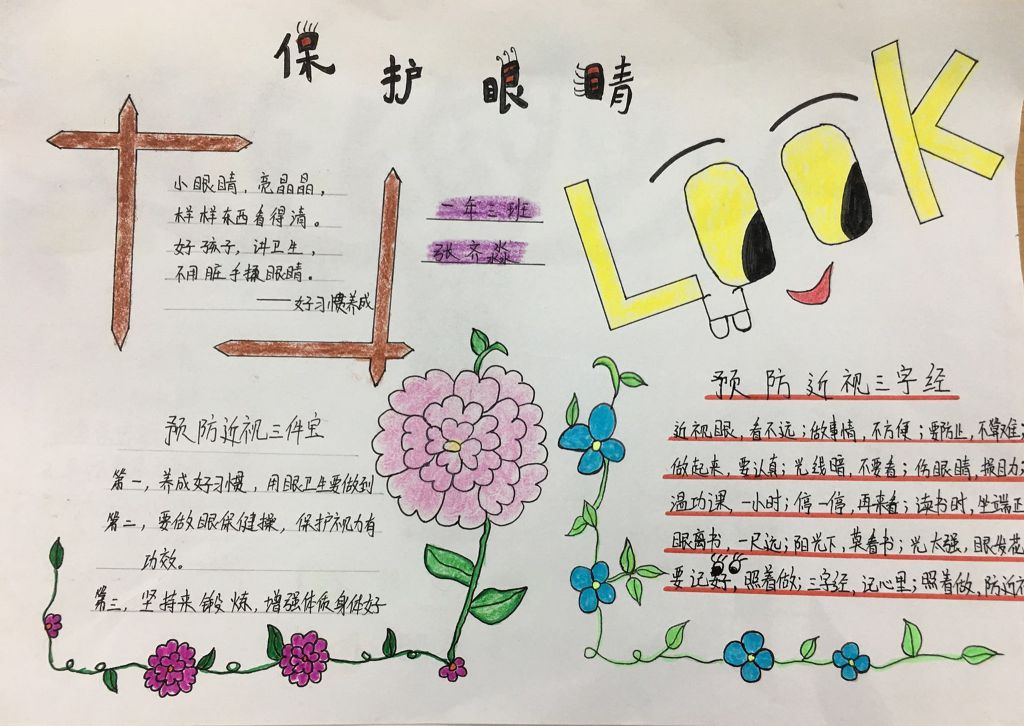 保护眼睛
LOOK
小眼睛，亮晶晶，
样样东西看得清。
好孩子，讲卫生，
不用脏手揉眼睛。
——好习惯养成
一年三班
张齐淼
预防近视三件宝
第一，养成好习惯，用眼卫生要做到
第二，要做眼保健操，保护视力有
功效。
第三，坚持来锻炼，增强体质身体好
预防近视三字经
近视眼，看不远；做事情，不方便；要防止，不算难；
做起来，要认真；光线暗，不要看；伤眼睛，损目力；
温功课，一小时；停一停，再来看；读书时，坐端正
眼离书，一尺远；阳光下，莫看书；光太强，眼发花
要记好，照着做；三字经，记心里；照着做，防近视